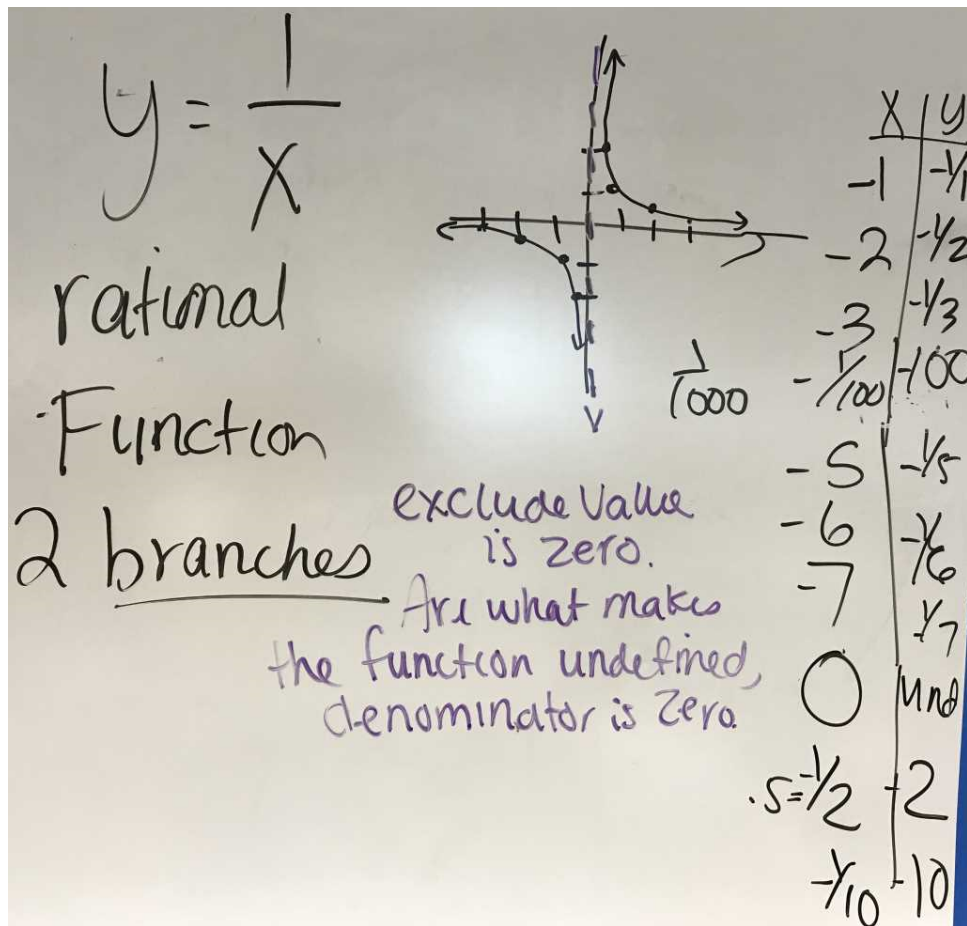 y = 1/x
rational
Function
2 branches
1/1000
exclude value
is zero.
Are what makes
the function undefined,
denominator is zero.
x | y
-1 | -1/1
-2 | -1/2
-3 | -1/3
-1/100 | -100
-5 | -1/5
-6 | -1/6
-7 | -1/7
0 | und
.5=-1/2 | -2
-1/10 | -10